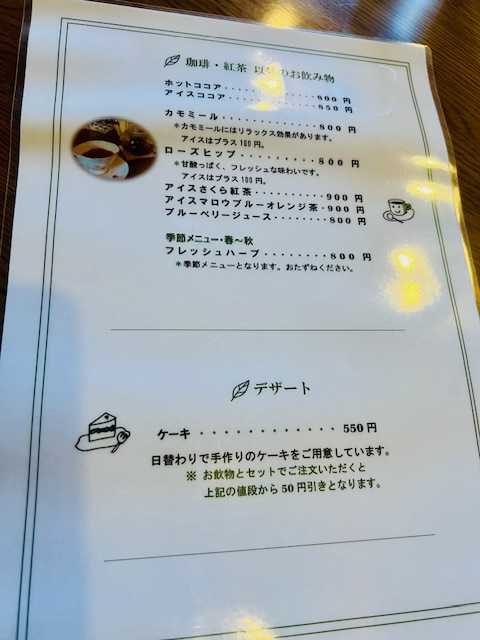 珈琲・紅茶 以外のお飲み物
ホットココア・・・・・・・・・・・・800 円
アイスココア・・・・・・・・・・・・850 円
カモミール・・・・・・・・・・・・・800 円
＊カモミールにはリラックス効果があります。
アイスはプラス100円。
ローズヒップ・・・・・・・・・・800 円
＊甘酸っぱく、フレッシュな味わいです。
アイスはプラス100円。
アイスさくら紅茶・・・・・・・・・・900 円
アイスマロウブルーオレンジ茶・900 円
ブルーベリージュース・・・・・・・・800 円
季節メニュー・春～秋
フレッシュハーブ・・・・・・・・800 円
＊季節メニューとなります。おたずねください。
デザート
ケーキ・・・・・・・・・・・・550円
日替わりで手作りのケーキをご用意しています。
※ お飲物とセットでご注文いただくと
上記の値段から50円引きとなります。